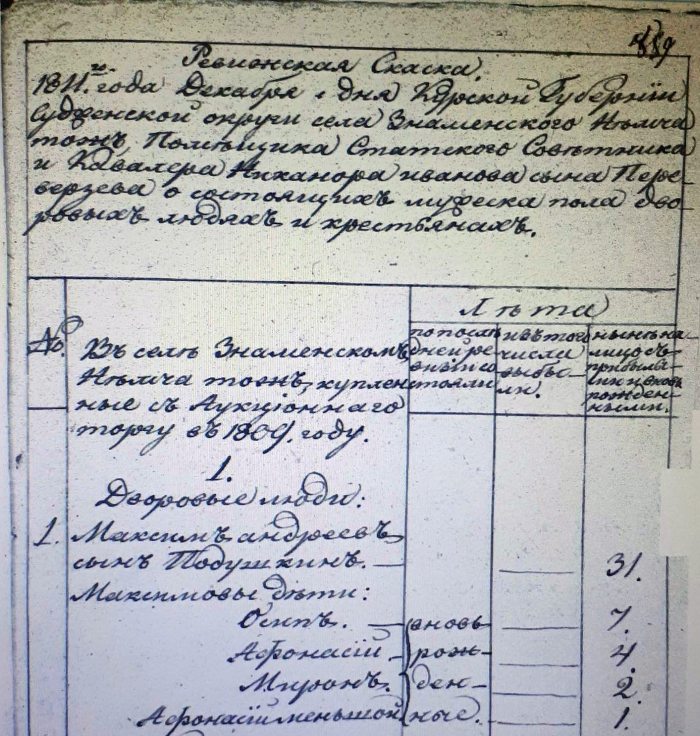 889
Ревизская Скаска.
1811го года Декабря " дня Курской Губернии
Судженской округи села Знаменского Нелѣча
тожъ, Помѣщика Статского Совѣтника
и Кавалера Никанора иванова сына Пере-
верзева о состоящихъ мужеска пола дво-
ровыхъ людяхъ и крестьянахъ.
Лѣта
No.
Въ селѣ Знаменскомъ,
Нѣлѣча тожъ, куплен-
ные съ Аукціоннаго
торгу въ 1809. году.
по послѣ-
дней ре-
визіи со
стояли
изъ того
числа
выбы-
ли.
нынѣ на
лицо съ
прибыла-
ми и вновь
рожден-
ными.
1.
Дворовые люди:
1. Максимъ андреевъ
сынъ Подушкинъ. — 31.
Максимовы дѣти:
Осипъ. — вновь 7.
Афонасій — рож- 4.
Миронъ. ден- 2.
Афонасій меньшой ные. 1.